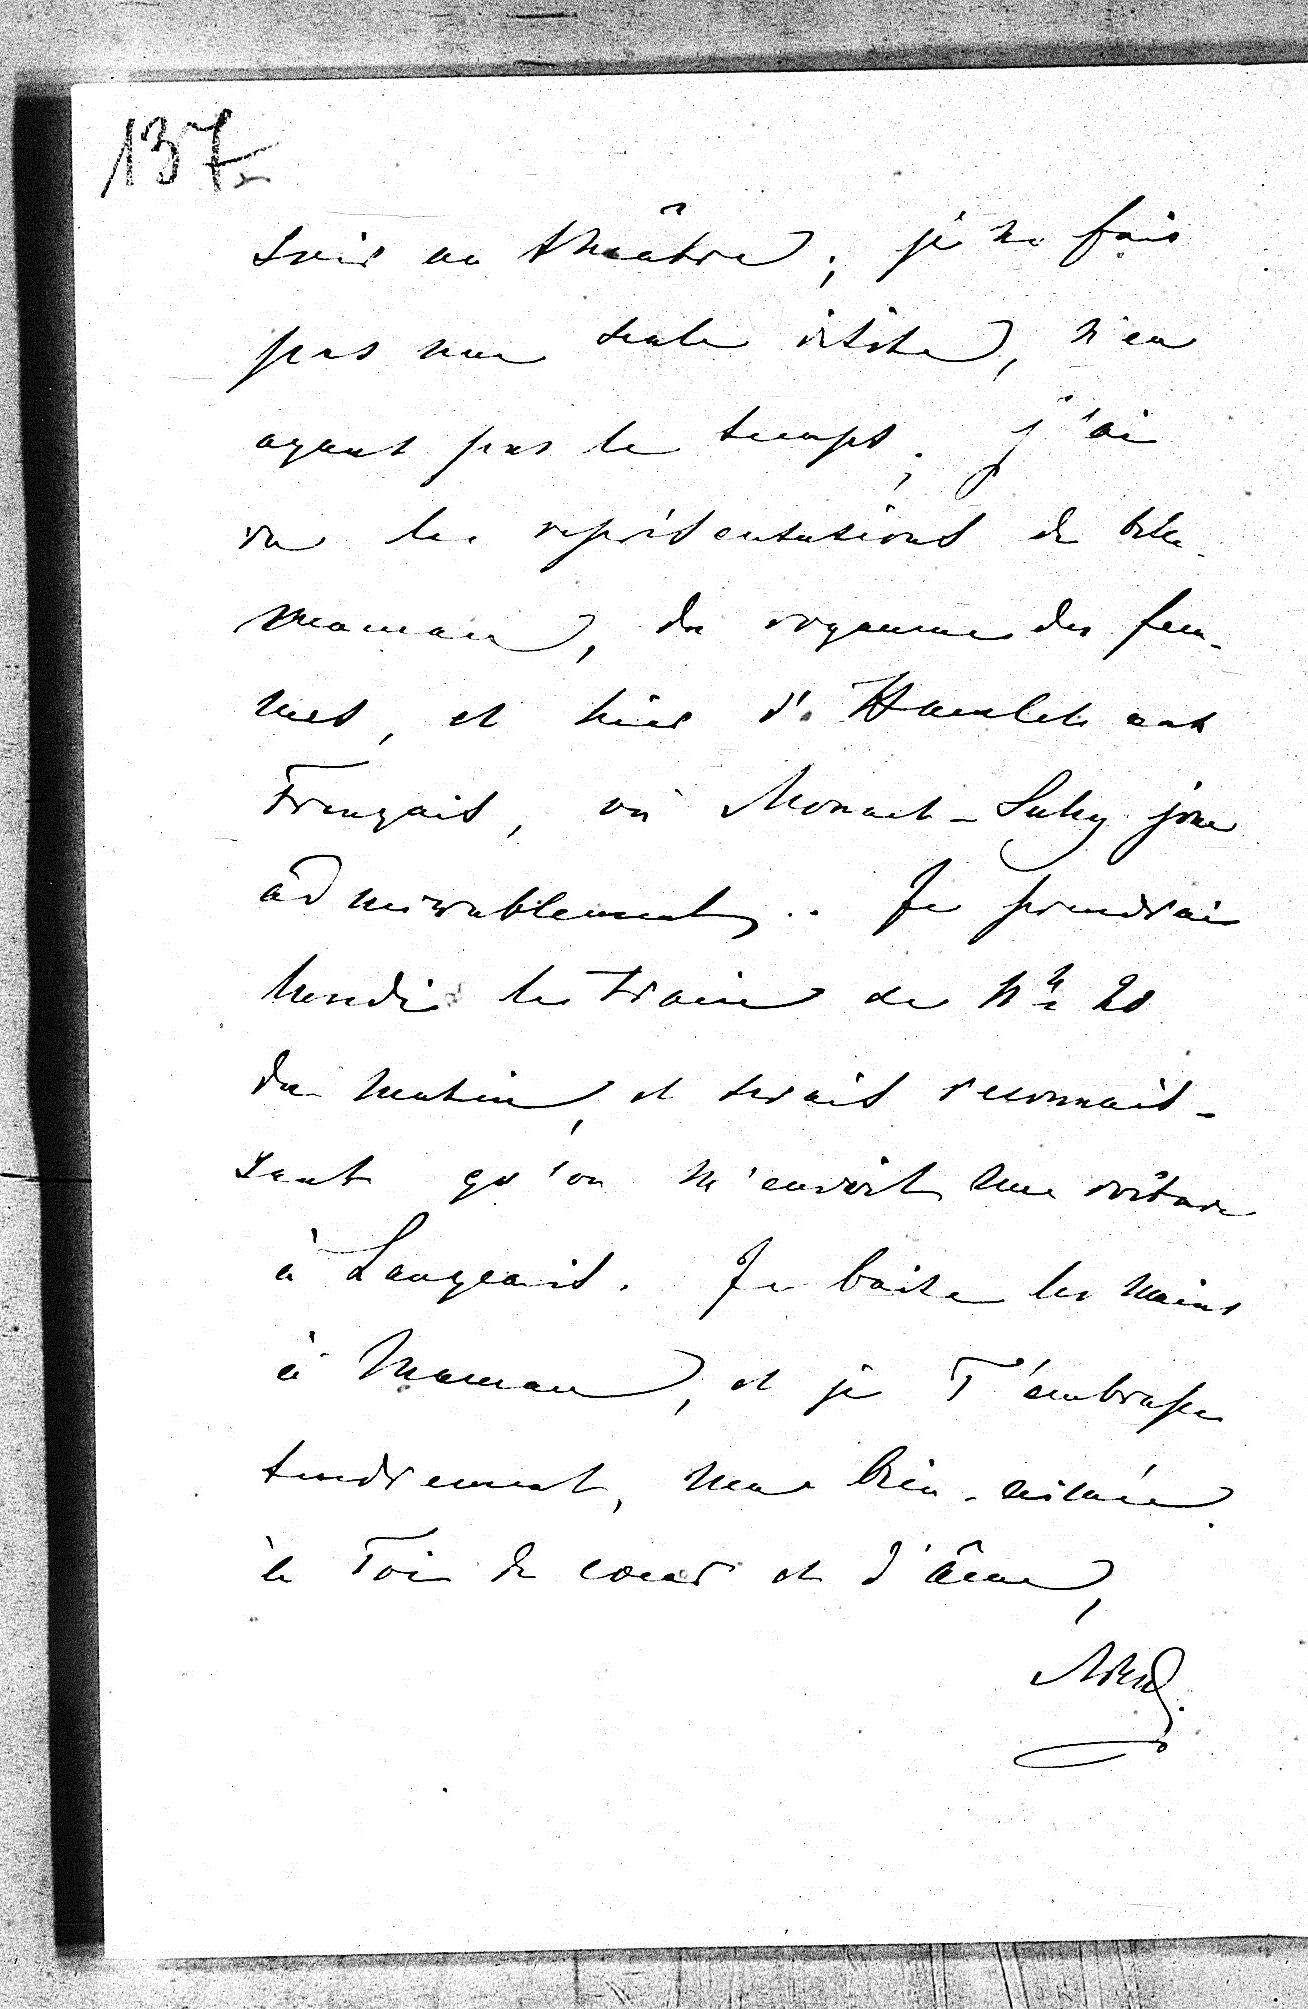 137
soir au théâtre ; je ne fais
pas une seule visite, n'en
ayant pas le temps ; j'ai
vu les représentations de belle-
maman, du royaume des fem-
mes, et hier d'Hamlet aux
Français, où Mounet-Sully joue
admirablement.. Je prendrai
le train de 20
du matin, et serais reconnais-
sant qu'on m'envoie une voiture
à Langeais. Je baise les mains
à Maman, et je T'embrasse
tendrement, ma bien-aimée.
à Toi de cœur et d'âme,